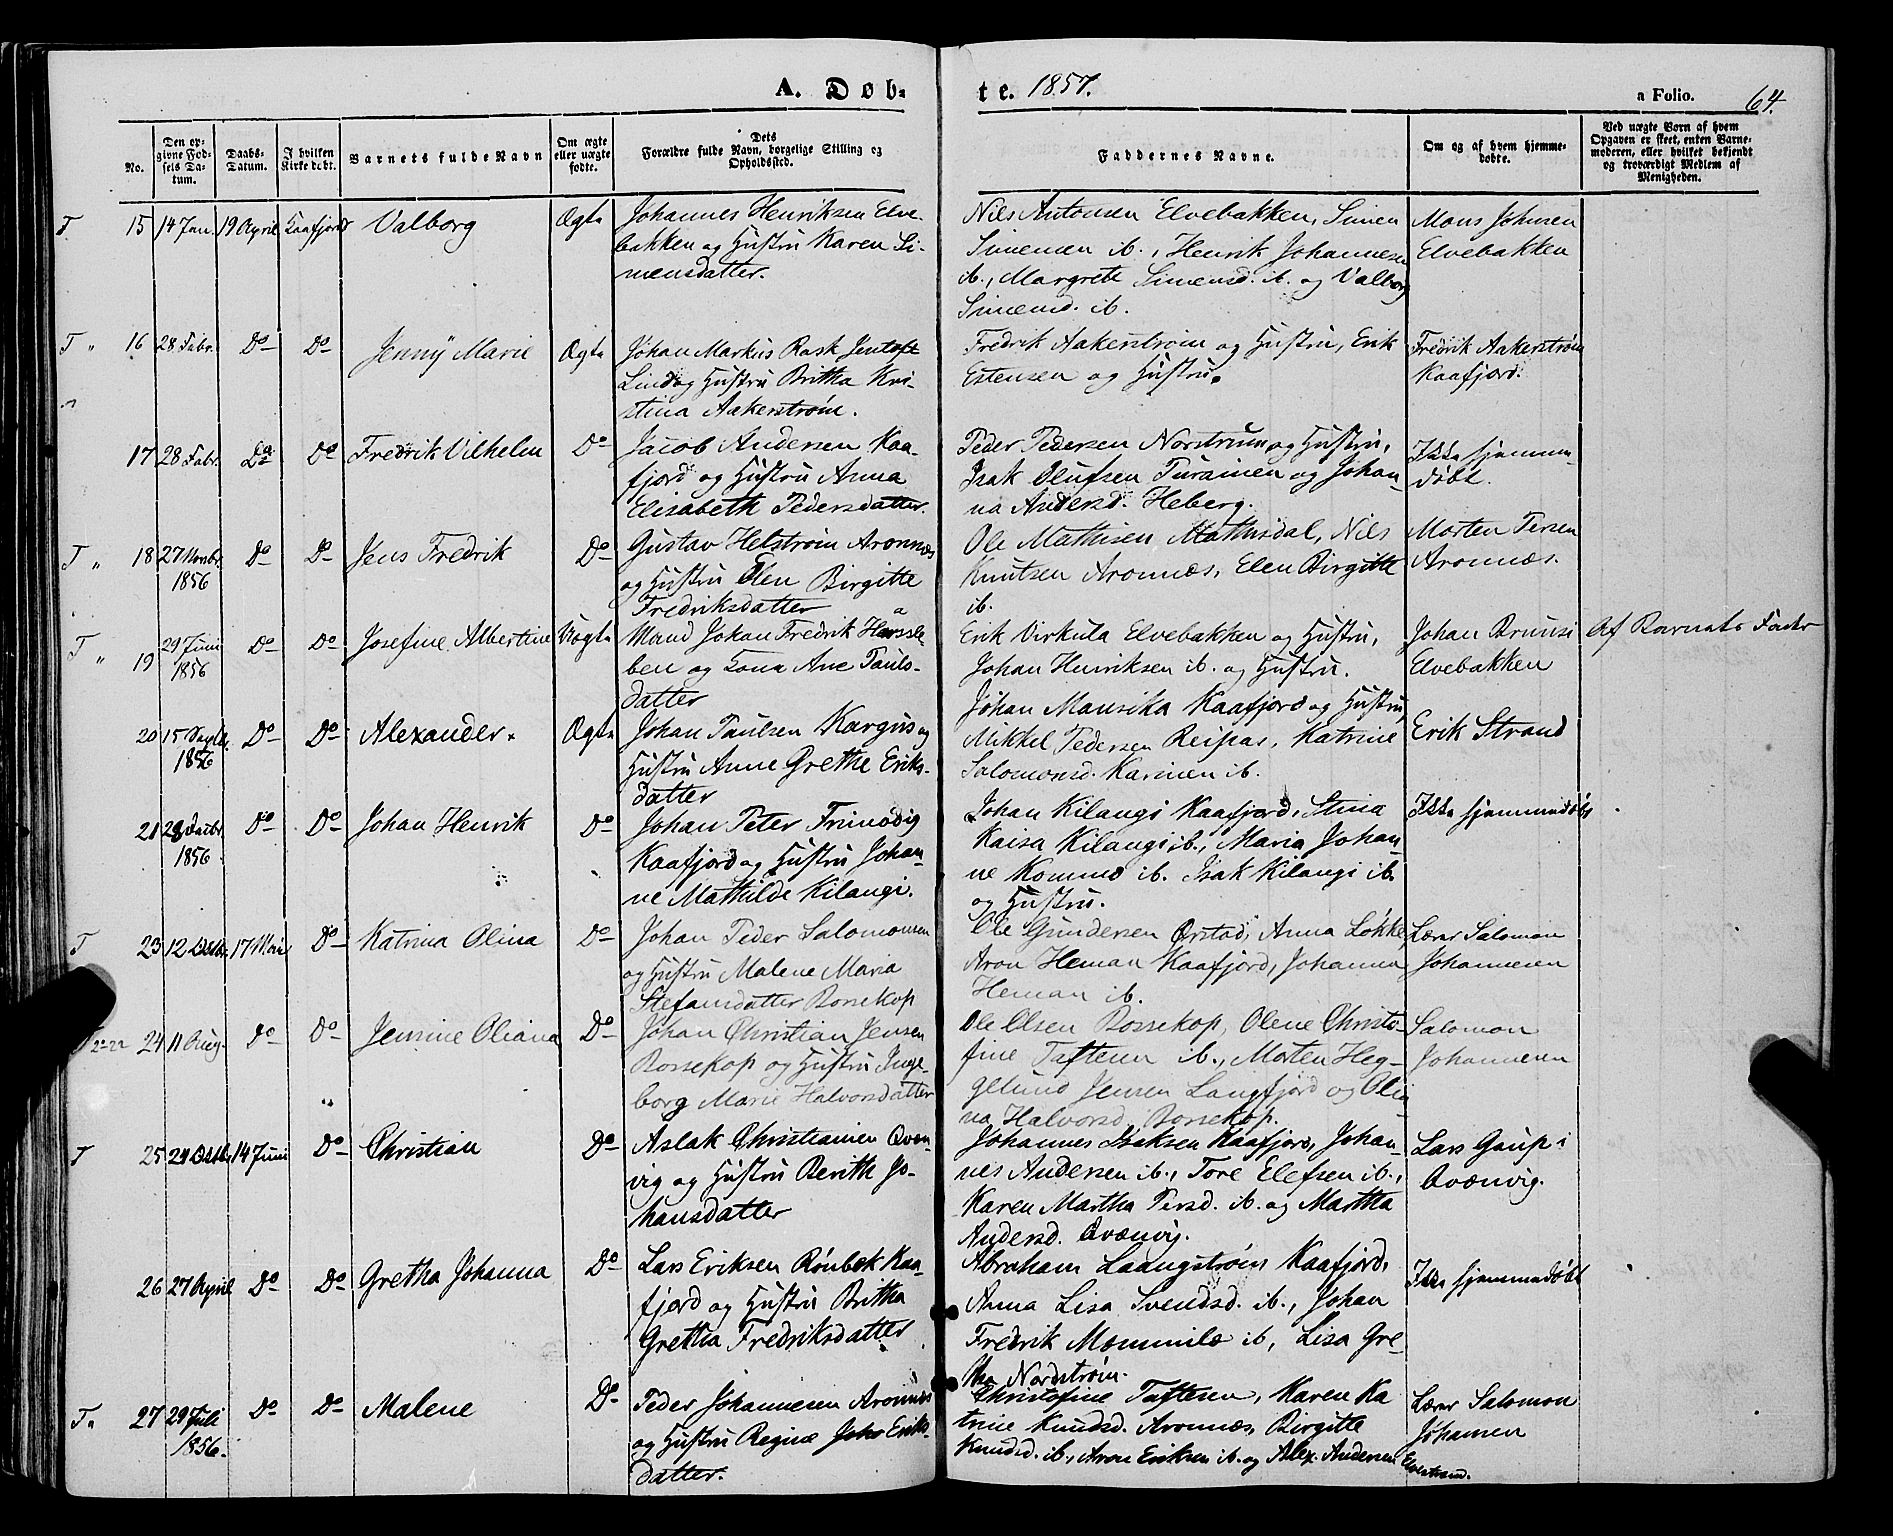 A. Døb-
te. 1857.
a Folio. 64.
No.
Den op-
givne Fød-
sels Da-
tum.
Daabs-
Datum.
I hvilken
Kirke døbt.
Barnets fulde Navn
Om ægte
eller uægte
fødte.
Dets
Forældre fulde Navn, borgelige Stilling og
Opholdssted.
Faddernes Navne.
Om og af hvem hjemme-
døbte.
Ved uægte Børn af hvem
Opgaven er skeet, enten Barne-
moderen, eller hvilket bekjendt
og troværdigt Medlem af
Menigheden.
T. 15 14 Jan. 19 April Kaafjord Valborg Ægte
Johannes Henriksen Elve-
bakken og Hustru Karen Si-
mensdatter.
Nils Antonsen Elvebakken, Simen
Simensen ib., Henrik Johannesen
ib., Margrete Simensd. ib. og Valborg
Simensd. ib.
Mons Johnsen
Elvebakken
T " 16 28 Febr. Do Do Jenny Marie Ægte
Johan Markus Rask Jentoft
Lind og Hustru Britha Kri-
stina Aakerstrøm.
Fredrik Aakerstrøm og Hustru, Erik
Estensen og Hustru.
Fredrik Aakerstrøm
Kaafjord.
17 28 Febr. Do Do Fredrik Vilhelm Do
Jacob Andersen Kaa-
fjord og Hustru Anna
Elisabeth Pedersdatter.
Peder Pedersen Norstrum og Hustru,
Isak Olufsen Purainen og Johan-
na Andersd. Heberg.
Ikke hjemme-
døbt.
T " 18 27 Novbr. Do Do Jens Fredrik Do
1856
Gustav Helstrøm Aronnæs
og Hustru Elen Birgitte
Fredriksdatter
Ole Mathisen Mathisdal, Nils
Knutsen Aronnæs, Elen Birgitte
ib.
Morten Persen
Aronnæs.
T " 19 29 Juni Do Do Josefine Albertine Uægte
1856
Mand Johan Fredrik Hassle
ben og Kona Ane Pauls-
datter
Erik Virkula Elvebakken og Hustru,
Johan Henriksen ib. og Hustru.
Johan Bruusi
Elvebakken
Af Barnets Fader
20 15 Do Do Alexander. Ægte
1856
Johan Paulsen Kargus og
Hustru Anne Grethe Eriks-
datter
Johan Mansika Kaafjord og Hustru,
Mikkel Pedersen Reipas, Katrine
Salomonsd. Karinen ib.
Erik Strand
21 28 Decbr. Do Do Johan Henrik Do
1856
Johan Peter Frimodig
Kaafjord og Hustru Johan-
ne Mathilde Kilangi.
Johan Kilangi Kaafjord, Stina
Kaisa Kilangi ib., Maria Johan-
ne Kommo ib. Isak Kilangi ib.
og Hustru.
Ikke hjemmedøbt
T 23 12 Octbr. 17 Mai Do Katrina Olina Do
Johan Peder Salomonsen
og Hustru Malene Maria
Stefansdatter Bossekop
Ole Gundersen Ørstad, Anna Løkke,
Aron Heman Kaafjord, Johanna
Heman ib.
Lærer Salomon
Johannesen
T 24 11 Aug. Do Do Jensine Oliana Do
Johan Christian Jensen
Bossekop og Hustru Inge-
borg Marie Halvorsdatter
Ole Olsen Bossekop, Olene Christo-
fine Taftesen ib., Morten Heg-
gelund Jensen Langfjord og Oli-
na Halvorsd. Bossekop.
Salomon
Johannesen
T 25 24 Octbr. 14 Juni Do Christian Do
Aslak Christiansen Qvæn-
vig og Hustru Berith Jo-
hansdatter
Johannes Isaksen Kaafjord, Johan-
nes Andersen ib., Tore Elefsen ib.,
Karen Martha Persd. ib. og Martha
Andersd. Qvænvig.
Lars Gaup i
Qvænvig.
26 27 April Do Do Gretha Johanna Do
Lars Eriksen Rønbek Kaa-
fjord og Hustru Britha
Gretha Fredriksdatter
Abraham Laangstrøm Kaafjord,
Anna Lisa Svendsd. ib., Johan
Fredrik Mommila ib, Lisa Gre-
tha Nordstrøm.
Ikke hjemmedøbt
T " 27 29 Juli Do Do Malene Do
1856.
Peder Johannesen Aronnæs
og Hustru Regine Eriks-
datter.
Christofine Taftesen, Karen Ka
trine Knudsd. Aronnæs, Birgitte
Knudsd. ib., Aron Eriksen ib. og Alex. Andersen
Elvestrand.
Lærer Salomon
Johansen